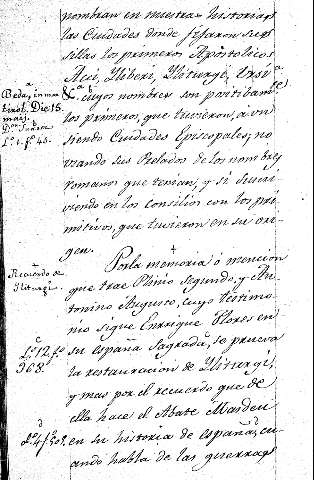 nombran en nuestras historias
las Ciudades donde fixaron sus
sillas los primeros Apostolicos
Acci, Yliberi, Yliturgi, Ursi
&c.ª cuyos nombres son positibamte
los primeros, que tuvieron, aun
siendo Ciudades Episcopales, no
usando sus Prelados de los nombres
romanos que tenian, y si suscri
viendo en los Consilios con los pri
mitivos, que tuvieron en su ori
gen.
Por la memoria o mencion
que trae Plinio segundo, y An
tonino Augusto, cuyo testimo
nio sigue Enrique Flores en
su españa Sagrada, se prueva
la restauracion de Yliturgi,
y mas por el recuerdo que de
ella hace el Abate Masdeu
en su historia de españa, cu
ando habla de las guerras
a
Beda, en mar
tirol. Die 15.
maij.
L.º 1. f.º 45.
Recuerdo de
Yliturgi.
c
L.º 12. f.º
368
d
L.º 4. f.º 02.